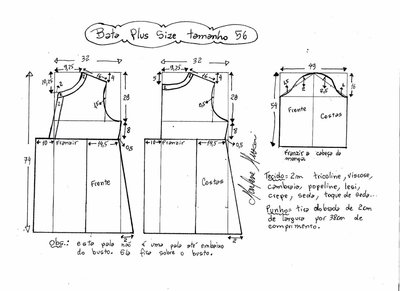 Bata Plus Size tamanho 56
32
9,25
4
28
8
0,5
10
Franzir
14,5
Frente
74
2
32
9,25
3
4
28
8
0,5
10
Franzir
14,5
Costas
2
49
54
16
Frente
Costas
Franzir a cabeça da
manga
Tecido: 2m tricoline, viscose,
cambraia, popeline, lesi,
crepe, seda, toque de seda...
Punho: tira dobrada de 2cm
de largura por 38cm de
comprimento.
Obs.: esta pala não é uma pala até embaixo
do busto. Só fica sobre o busto.